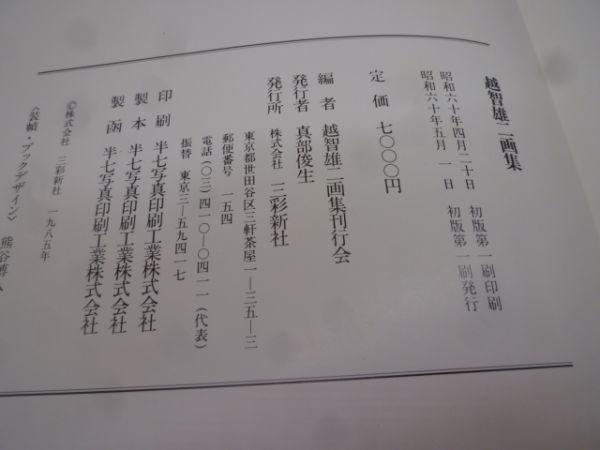 越智雄二画集
昭和六十年四月二十日　初版第一刷印刷
昭和六十年五月　一日　初版第一刷発行
定　価　七〇〇〇円
編　者　越智雄二画集刊行会
発行者　真部俊生
発行所　株式会社　三彩新社
東京都世田谷区三軒茶屋一―三五―三
郵便番号　一五四
電話（〇三）四一〇―〇四一一（代表）
振替　東京三―五九四一七
印　刷　半七写真印刷工業株式会社
製　本　半七写真印刷工業株式会社
製　函　半七写真印刷工業株式会社
©株式会社　三彩新社　一九八五年
〈装幀・ブックデザイン〉　熊谷博